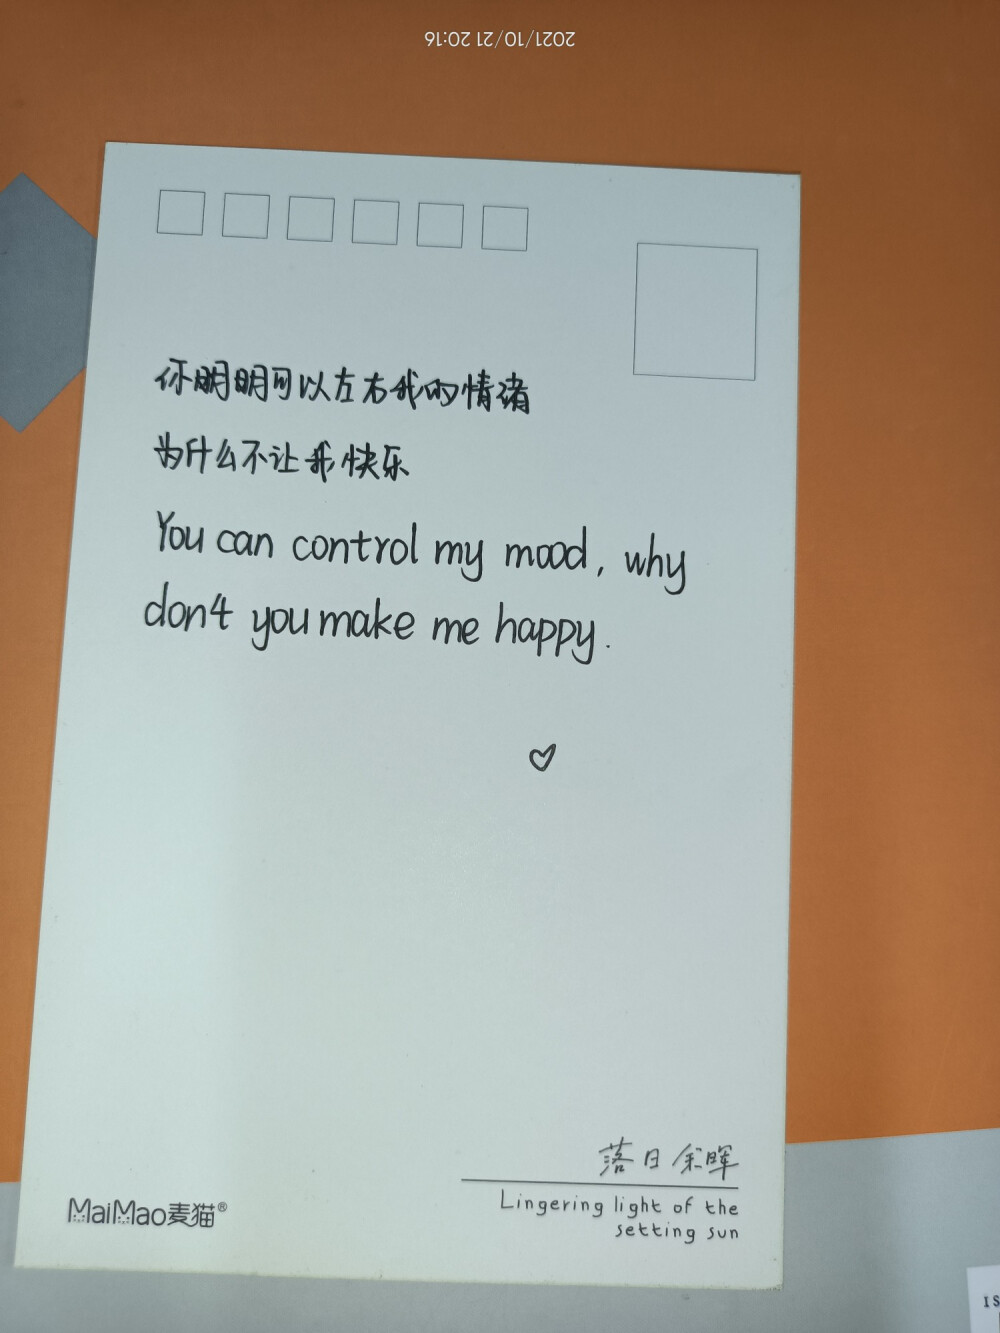 2021/10/21 20:16
你明明可以左右我的情绪
为什么不让我快乐
You can control my mood, why
don4t you make me happy.
落日余晖
Lingering light of the
setting sun
MaiMao麦猫®
IS